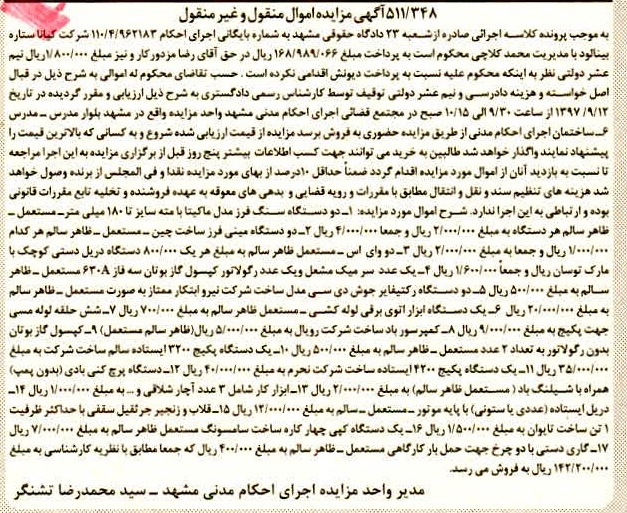 ۵۱۱/۳۴۸ آگهی مزایده اموال منقول و غیر منقول
به موجب پرونده کلاسه اجرائی صادره ازشعبه ۲۳ دادگاه حقوقی مشهد به شماره بایگانی اجرای احکام ۱۱۰/۴/۹۶۲۱۸۳ شرکت کیانا ستاره
بینالود با مدیریت محمد کلاچی محکوم است به پرداخت مبلغ ۱۶۸/۹۸۹/۰۶۶ ریال در حق آقای رضا مزدور کار و نیز مبلغ ۱/۸۰۰/۰۰۰ ریال نیم
عشر دولتی نظر به اینکه محکوم علیه نسبت به پرداخت دیونش اقدامی نکرده است . حسب تقاضای محکوم له اموالی به شرح ذیل در قبال
اصل خواسته و هزینه دادرسی و نیم عشر دولتی توقیف توسط کارشناس رسمی دادگستری به شرح ذیل ارزیابی و مقرر گردیده در تاریخ
۱۳۹۷/۹/۱۲ از ساعت ۹/۳۰ الی ۱۰/۱۵ صبح در مجتمع قضائی اجرای احکام مدنی مشهد واحد مزایده واقع در مشهد بلوار مدرس ـ مدرس
۶ـ ساختمان اجرای احکام مدنی از طریق مزایده حضوری به فروش برسد مزایده از قیمت ارزیابی شده شروع و به کسانی که بالاترین قیمت را
پیشنهاد نمایند واگذار خواهد شد طالبین به خرید می توانند جهت کسب اطلاعات بیشتر پنج روز قبل از برگزاری مزایده به این اجرا مراجعه
تا نسبت به بازدید آنان از اموال مورد مزایده اقدام گردد ضمناً حداقل ۱۰درصد از بهای مورد مزایده نقدا و فی المجلس از برنده وصول خواهد
شد هزینه های تنظیم سند و نقل و انتقال مطابق با مقررات و رویه قضایی و بدهی های معوقه به عهده فروشنده و تخلیه تابع مقررات قانونی
بوده و ارتباطی به این اجرا ندارد. شرح اموال مورد مزایده: ۱ـ دو دستگاه سنگ فرز مدل ماکیتا با مته سایز تا ۱۸۰ میلی متر ـ مستعمل ـ
ظاهر سالم هر دستگاه به مبلغ ۲/۰۰۰/۰۰۰ ریال و جمعا ۴/۰۰۰/۰۰۰ ریال ۲ـ دو دستگاه مینی فرز ساخت چین ـ مستعمل ـ ظاهر سالم هر کدام
۱/۰۰۰/۰۰۰ ریال و جمعا به مبلغ ۲/۰۰۰/۰۰۰ ریال ۳ـ دو وای اس ـ مستعمل ظاهر سالم به مبلغ هر یک ۸۰۰/۰۰۰ دستگاه دریل دستی کوچک با
مارک توسان ریال و جمعاً ۱/۶۰۰/۰۰۰ ریال ۴ـ یک عدد سر میک مشعل ویک عدد رگولاتور کپسول گاز بوتان سه فاز ۶۳۰A مستعمل ـ ظاهر
سالم به مبلغ ۵۰۰/۰۰۰ ریال ۵ـ دو دستگاه رکتیفایر جوش دی سی مدل ساخت شرکت نیرو ابتکار ممتاز به صورت مستعمل ـ ظاهر سالم
به مبلغ ۲۰/۰۰۰/۰۰۰ ریال ۶ـ یک دستگاه ابزار اتوی برقی لوله کشی ـ مستعمل ظاهر سالم به مبلغ ۷۰۰/۰۰۰ ریال ۷ـ شش حلقه لوله مسی
جهت پکیج به مبلغ ۹/۰۰۰/۰۰۰ ریال ۸ـ کمپرسور باد ساخت شرکت رویال به مبلغ ۵/۰۰۰/۰۰۰ ریال(ظاهر سالم مستعمل) ۹ـ کپسول گاز بوتان
بدون رگولاتور به تعداد ۲ عدد مستعمل ـ ظاهر سالم به مبلغ ۵۰۰/۰۰۰ ریال ۱۰ـ یک دستگاه پکیج ۳۲۰۰ ایستاده سالم ساخت شرکت به مبلغ
۳۵/۰۰۰/۰۰۰ ریال ۱۱ـ یک دستگاه پکیج ۴۲۰۰ ایستاده ساخت شرکت نجرم به مبلغ ۴۰/۰۰۰/۰۰۰ ریال ۱۲ـ دستگاه پرچ کنی بادی (بدون پمپ)
همراه با شیلنگ باد ( مستعمل ظاهر سالم) به مبلغ ۲/۰۰۰/۰۰۰ ریال ۱۳ـ ابزار کار شامل ۳ عدد آچار شلاقی و ... به مبلغ ۱/۰۰۰/۰۰۰ ریال ۱۴ـ
دریل ایستاده (عددی یا ستونی) با پایه موتور ـ مستعمل ـ سالم به مبلغ ۱۲/۰۰۰/۰۰۰ ریال ۱۵ـ قلاب و زنجیر جرثقیل سقفی با حداکثر ظرفیت
۱ تن ساخت تایوان به مبلغ ۱/۵۰۰/۰۰۰ ریال ۱۶ـ یک دستگاه کپی چهار کاره ساخت سامسونگ مستعمل ظاهر سالم به مبلغ ۷/۰۰۰/۰۰۰ ریال
۱۷ـ گاری دستی با دو چرخ جهت حمل بار کارگاهی مستعمل ـ ظاهر سالم به مبلغ ۴۰۰/۰۰۰ ریال که جمعا مطابق با نظریه کارشناسی به مبلغ
۱۴۲/۲۰۰/۰۰۰ ریال به فروش می رسد.
مدیر واحد مزایده اجرای احکام مدنی مشهد ـ سید محمدرضا تشنگر